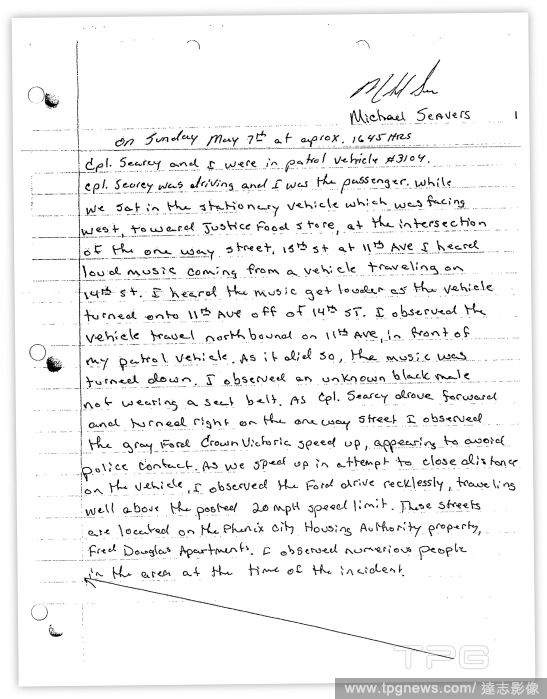 Michael Seavers
1
on Sunday May 7th at aprox. 1645 HRS
Cpl. Searcy and I were in patrol vehicle #3104.
Cpl. Searcy was driving and I was the passenger. While
we sat in the stationary vehicle which was facing
west, toward Justice Food store, at the intersection
of the one way street, 15th st at 11th Ave I heard
loud music coming from a vehicle traveling on
14th st. I heard the music get louder as the vehicle
turned onto 11th Ave off of 14th ST. I observed the
vehicle travel northbound on 11th Ave, in front of
my patrol vehicle. As it did so, the music was
turned down. I observed an unknown black male
not wearing a seat belt. As Cpl. Searcy drove forward
and turned right on the one way street I observed
the gray Ford Crown Victoria speed up, appearing to avoid
police contact. As we sped up in attempt to close distance
on the vehicle, I observed the Ford drive recklessly, traveling
well above the posted 20 mph speed limit. These streets
are located on the Phenix City Housing Authority property,
Fred Douglas Apartments. I observed numerious people
in the area at the time of the incident.
TPG
www.tpgnews.com/達志影像